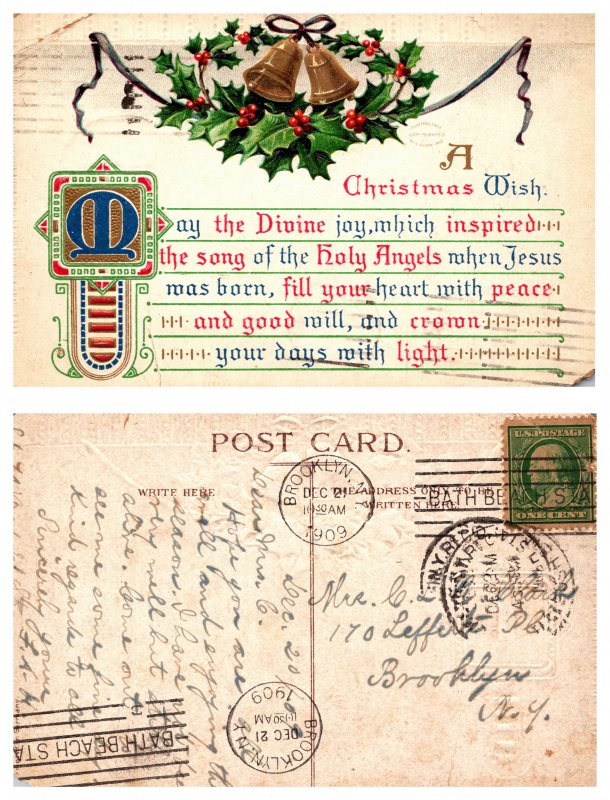 A
Christmas Wish.
May the Divine joy, which inspired
the song of the Holy Angels when Jesus
was born, fill your heart with peace
and good will, and crown
your days with light.
POST CARD.
WRITE HERE
THE ADDRESS ONLY TO BE
WRITTEN HERE.
BROOKLYN, N.Y.
DEC 21
10 30 AM
1909
BATH BEACH STA
U.S. POSTAGE
ONE CENT
Mrs. C.
170 Lefferts Pl
Brooklyn
N.Y.
Dec. 20
Dear Mrs. C.
Hope you are
well and enjoying the
season. I have
very well but
alone. Come out
some
kind regards to all
Sincerely yours
BROOKLYN N.Y.
DEC 21
10 30 AM
1909
BATH BEACH STA